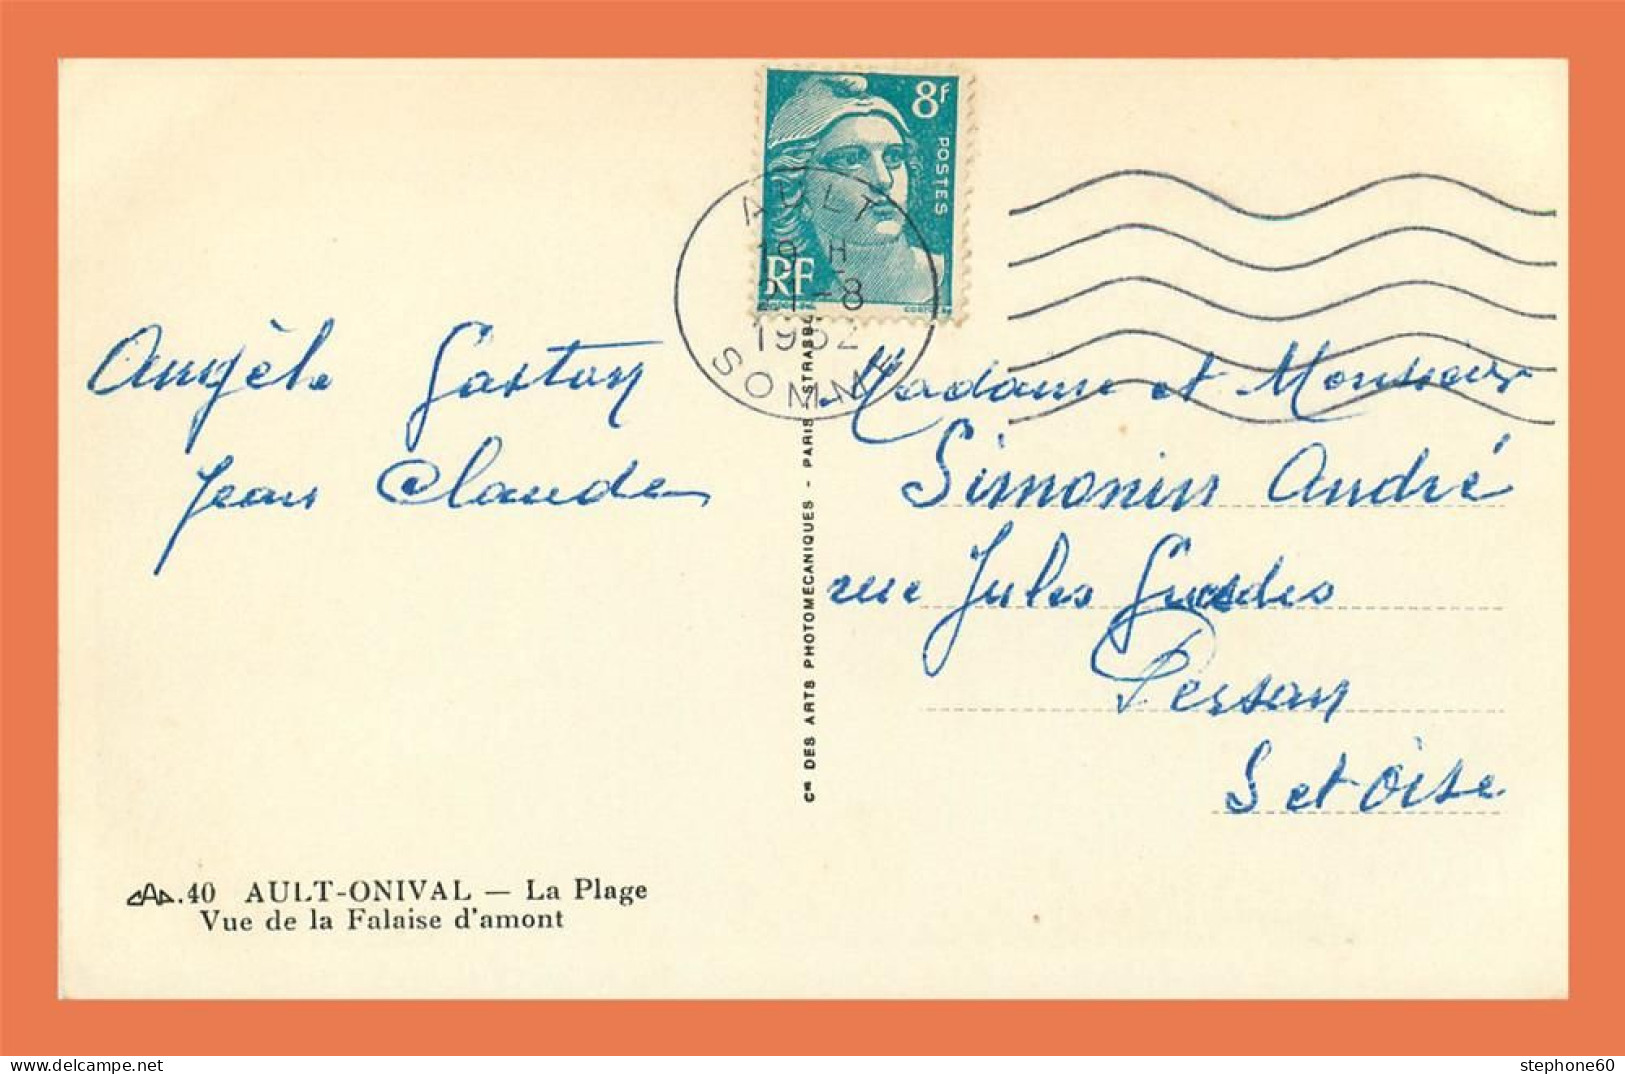 8f
POSTES
RF
AULT
19 H
1-8
1952
SOMME
Angèle Gaston
Jean Claude
Madame et Monsieur
Simonin André
rue Jules Guesdes
Persan
S et Oise
Cie DES ARTS PHOTOMECANIQUES - PARIS - STRASBO
CAP.40 AULT-ONIVAL — La Plage
Vue de la Falaise d'amont
stephone60